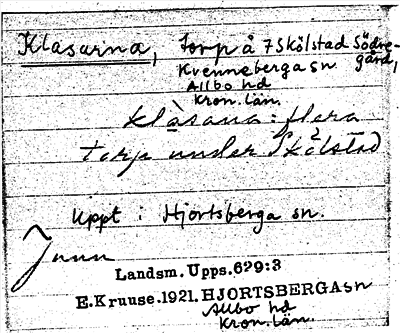 Klasarna, torp å 7 Skölstad Södre-
gård,
Kvenneberga sn
Allbo hd
Kron. län.
klàsana: flera
torp under Skölstad
Uppt i Hjortsberga sn.
Landsm. Upps. 629:3
E. Kruuse. 1921. HJORTSBERGA sn
Allbo hd
Kron. län.